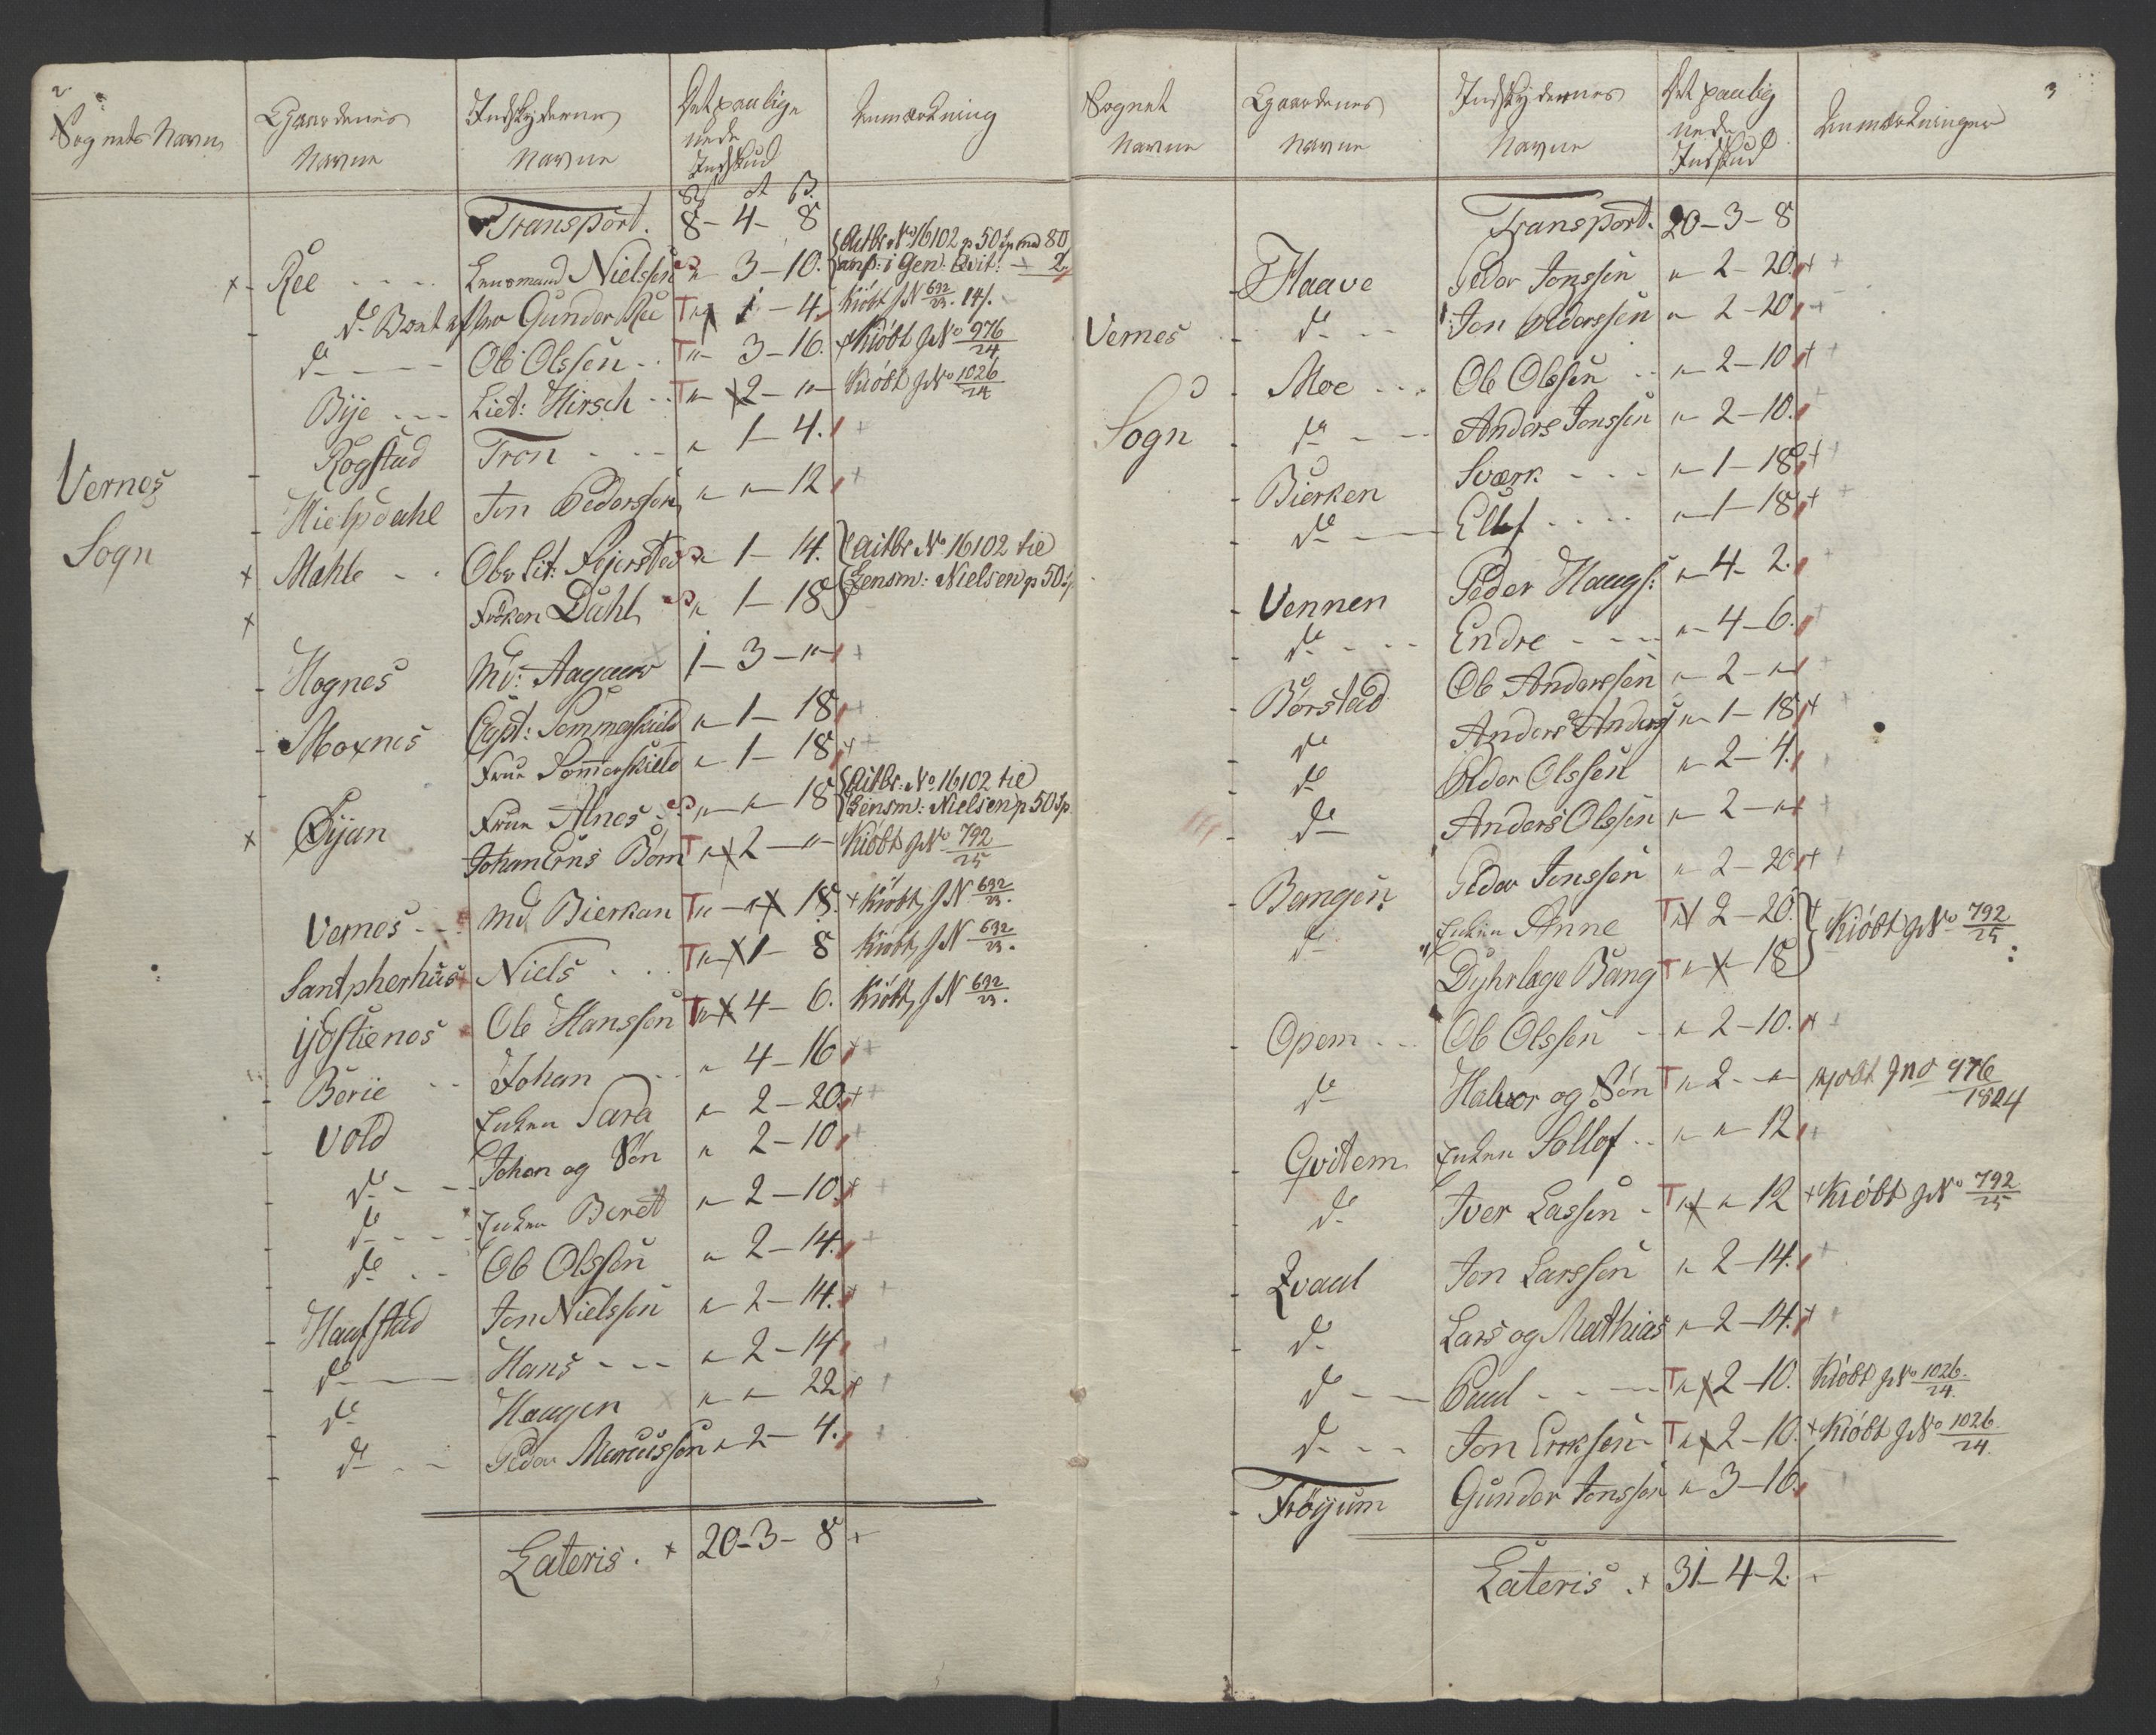 2
Sognets Navn
Gaardenes Navne
Indskydernes Navne
Det paalignede Indskud
Anmærkning
Transport. 8 - 4 - 8
Ree Lensmand Nielssen " 3 - 10. Aitbr. No 16102 p 50 Sp med 80
anf: i Gen: Qvit: 2
do Gunder Ree T " 1 - 4. Kiöbt J N 692/23. 141.
do Ole Olssen T " 3 - 16. Kiöbt J No 976/24
Bije Liet: Hirsch T " 2 - " Kiöbt J No 1026/24
Rogstad Tron " 1 - 4.
Hielpdahl Jon Pedersen " " 12
Vernes
Sogn
Mahle Obr Lit: " 1 - 14. Aitbr No 16102 til
Lensm: Nielsen p 50 Sp
Frøken Dahl " 1 - 18
Hognes Md: Aagaard 1 - 3 - "
Moxnes Capt: Sommerskield " 1 - 18
Frue Sommerskield " 1 - 18
Øijan Frue Alnes " " 18 Aitbr: No 16102 til
Lensm: Nielsen p 50 Sp
Johan Erns Börn T " 2 - " Kiöbt J No 792/25
Vernes Md. Bierkan T " " 18. Kiöbt J N 692/23.
Santpherhus Niels T " 1 8 Kiöbt J N 692/23.
ijöstienes Ole Hanssen T " 4 - 6. Kiöbt J N 692/23.
Børie Johan " 4 - 16
Vold Enken Sara " 2 - 20
do Johan og Søn " 2 - 10
do Enken Beret " 2 - 10
do Ole Olssen " 2 - 14.
Haufstad Jon Nielssen " 2 - 14.
do Hans " 2 - 14
do Haagen " " 22
do Peder Marcussen " 2 - 4.
Lateris. 20 - 3 - 8
3
Sognets Navne
Gaardenes Navne
Indskydernes Navne
Det paalignede Indskud
Anmærkninger
Transport. 20 - 3 - 8
Haave Peder Jonssen " 2 - 20
Vernes
do Jon Pederssen " 2 - 20
Moe Ole Olssen " 2 - 10
Sogn
do Anders Jonssen " 2 - 10.
Bierken Sværk " 1 - 18
do Ellef " 1 - 18
Vennen Peder Haags: " 4 - 2.
do Endre " 4 - 6.
Børstad Ole Anderssen " 2 - "
do Anders Anders " 1 - 18
do Peder Olssen " 2 - 4.
do Anders Olssen " 2 - "
Bangen Peder Jonssen " 2 - 20
do Enken Anne T " 2 - 20. Kiöbt J No 792/25
Dyhrlage Bang T " " 18
Opem Ole Olssen " 2 - 10.
do Halvor og Søn T " 2 - " Kjøbt J No 976/1824
Qvitem Enken Sollof " " 12
do Iver Lassen T " " 12 Kiöbt J No 792/25
Qvaal Jon Larssen " 2 - 14.
do Lars og Mathias " 2 - 14.
do Paul T " 2 - 10. Kiöbt J No 1026/24.
do Jon Erksen T " 2 - 10. Kiöbt J No 1026/24.
Frøijum Gunder Jonssen " 3 - 16.
Lateris. 31 - 4 - 2.